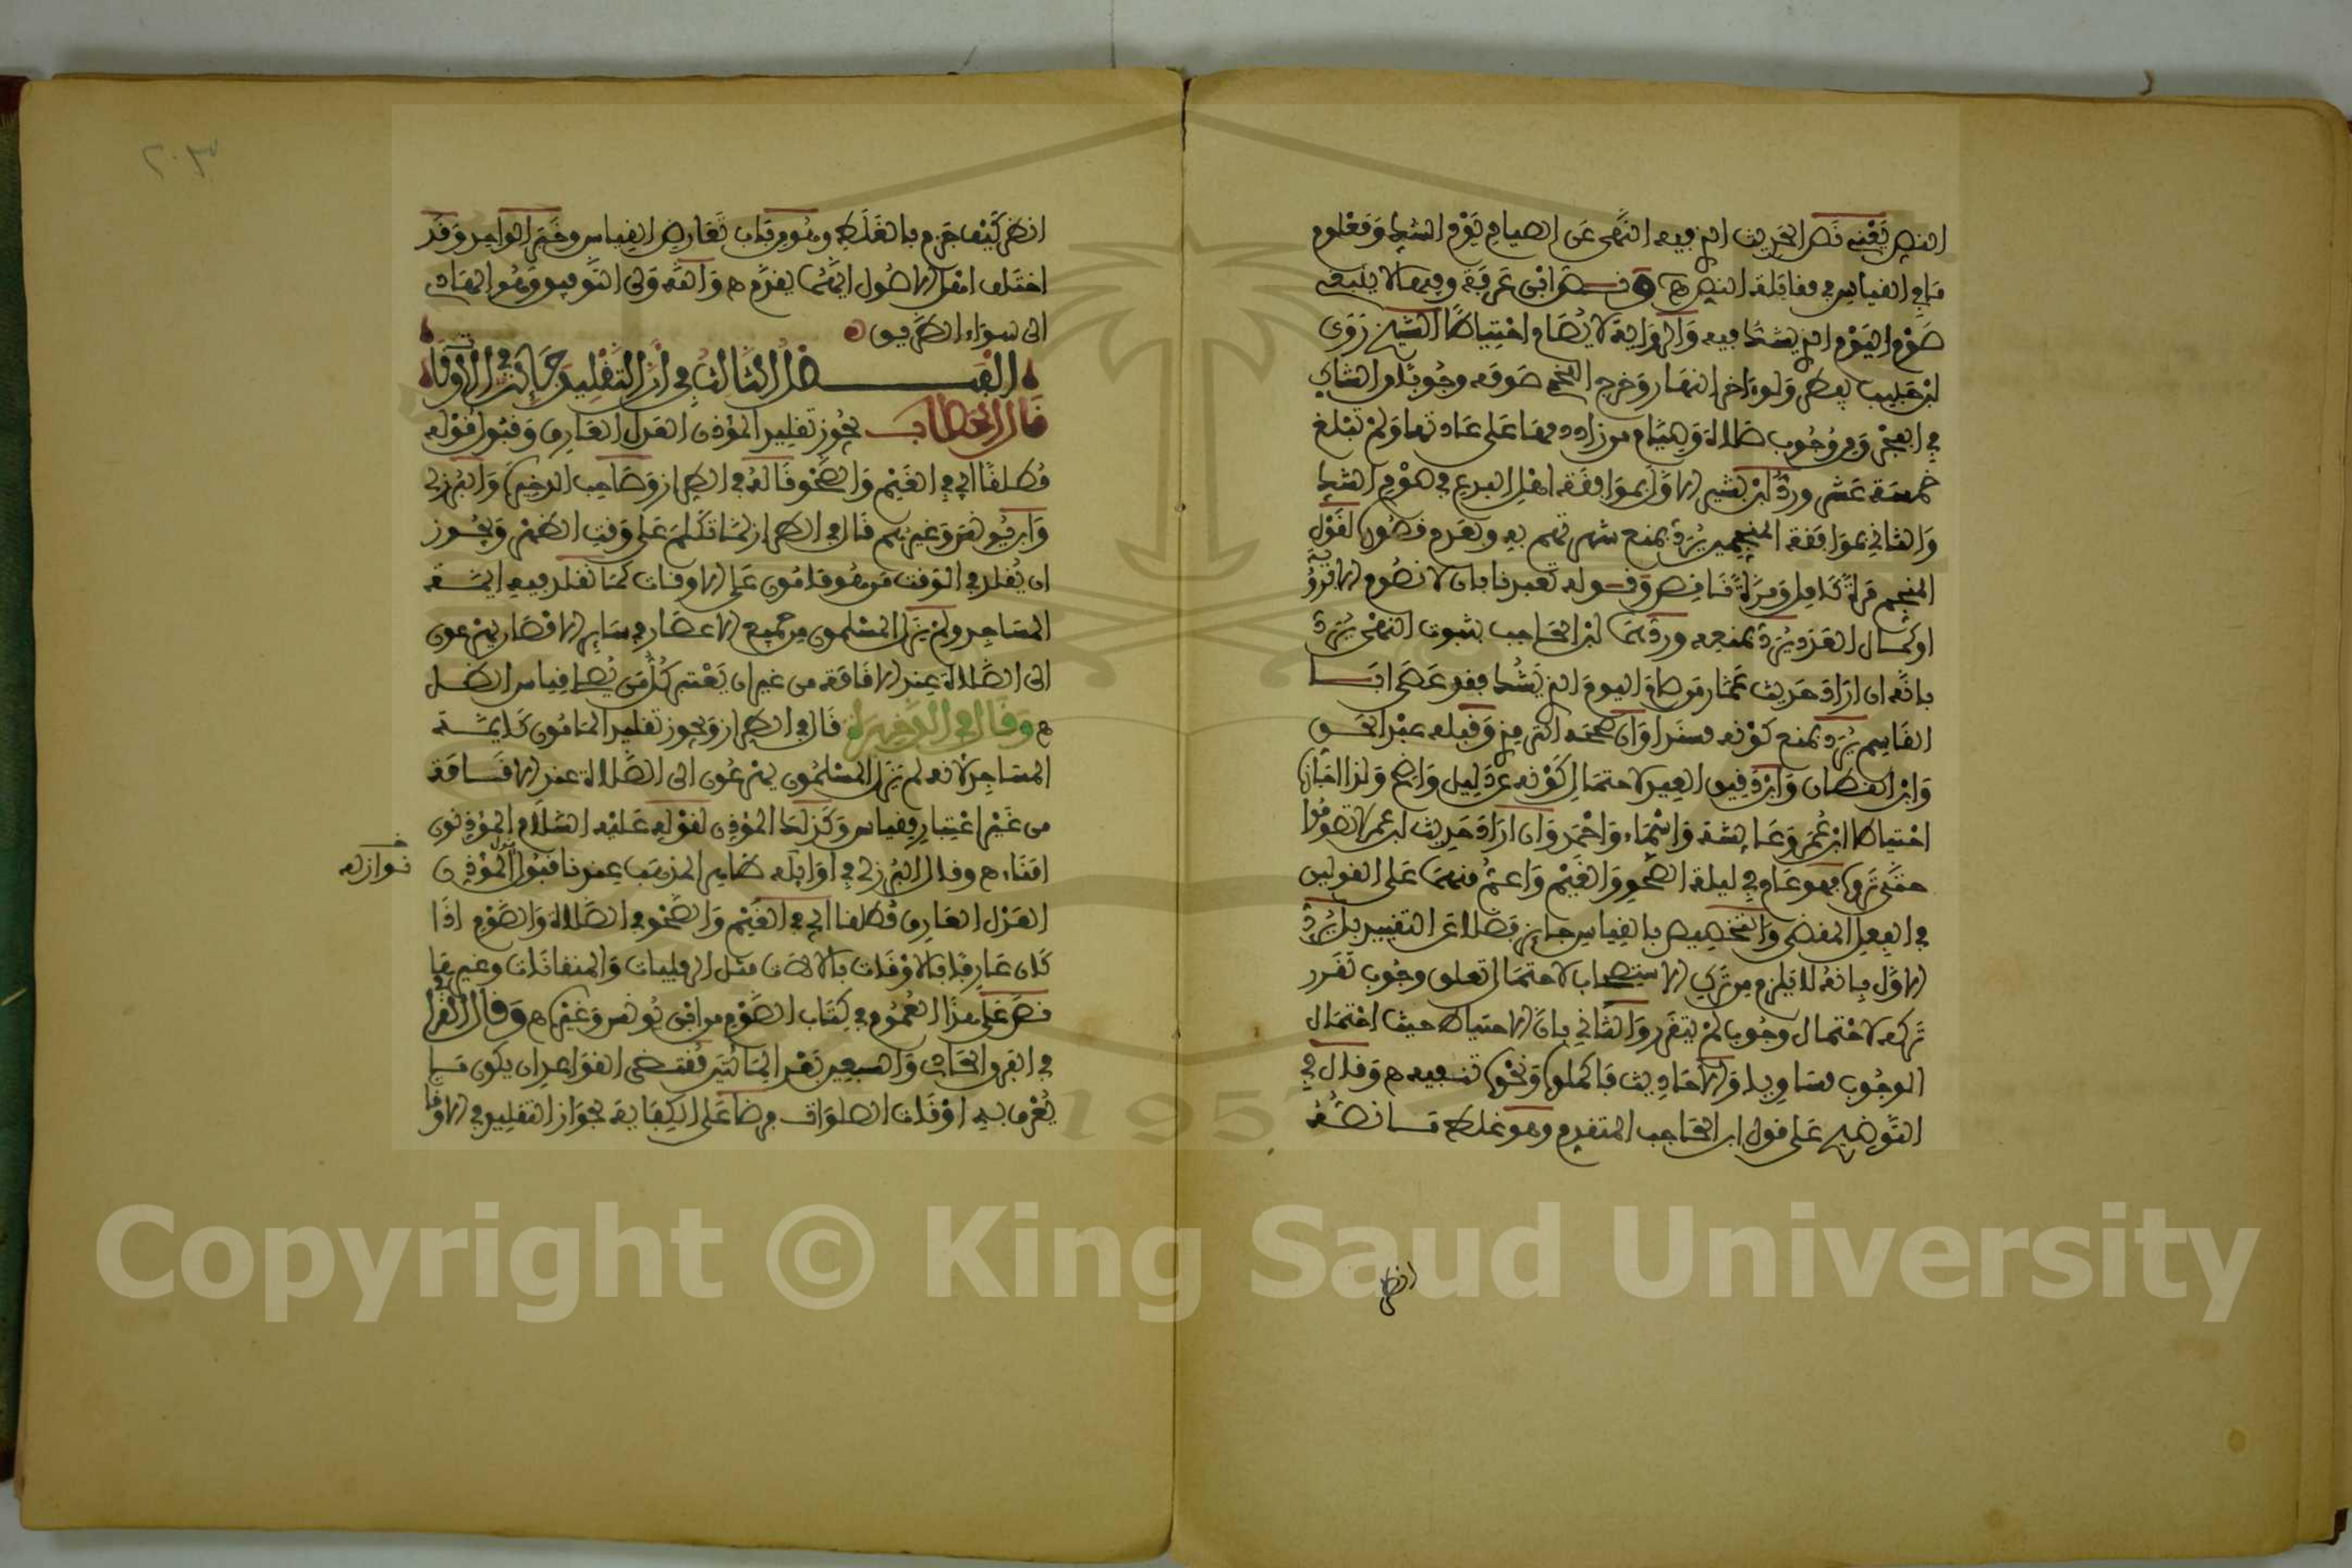 النص يعني نص الحديث الذي فيه النهي عن الصيام يوم الشك ومعلوم
ما في القياس في مقابلة النص ه وفسر ابن عرفة وفيها لا ينبغي
صوم اليوم الذي يشك فيه والرواية لا يصام احتياطا الشيخ روى
ابن حبيب يفطر ولو اخر النهار وخرج اللخمي صومه وجوبا من الشاك
في الفجر ومن وجوب صلاة وصيام من زاد دمها على عادتها ولم تبلغ
خمسة عشر ورد ابن بشير الاول بموافقة اهل البدع في صوم الشك
والثاني بموافقة المنجمين يرد بمنع شهرتهم به وبعدم قصور لقول
المنجم مرة كامل ومرة ناقص وقوله تعبدنا بان لا نصوم الا برؤية
او كمال العدد يرد بمنعه وردهما ابن الحاجب بثبوت النهي يرد
بانه ان اراد حديث عمار من صام اليوم الذي يشك فقد عصى ابا
القاسم يرد بمنع كونه مسندا وان صححه الترمذي وقبله عبد الحق
وابن القطان وابن دقيق العيد لاحتمال كونه عن دليل واضح ولذا اجازه
احتياطا ابن عمر وعائشة واسماء واحمد وان اراد حديث ابن عمر لا تصوموا
حتى تروه فهو عام في ليلة الصحو والغيم واعم منهما على القولين
في الفعل المفضي والتخصيص بالقياس جائز فضلا عن التقييد بل يرد
الاول بانه لا يلزم من ترك الاستصحاب لاحتمال تعلق وجوب تقرر
تركه لاحتمال وجوب لم يتقرر والثاني بان الاحتياط حيث احتمال
الوجوب مساو والاحاديث فاكملوا ونحوه تنبيه ه وقال في
التوضيح على قول ابن الحاجب المتقدم وهو غلط ما نصه
انظر
٢٠٣
انظر كيف جزم بالغلط وهو من باب تعارض القياس وخبر الواحد وقد
اختلف اهل الاصول ايهما يقدم ه والله ولي التوفيق وهو الهادي
الى سواء الطريق ه
الفصل الثالث في ان التقليد جائز في الاوقات
قال الحطاب يجوز تقليد المؤذن العدل العارف وقبول قوله
مطلقا اي في الغيم والصحو قاله في الطراز وصاحب الذخيرة والبرزلي
وابن يونس وغيرهم قال في الطراز لما تكلم على وقت الظهر ويجوز
ان يقلد في الوقت من هو مامون على الاوقات كما تقلد فيه ايمة
المساجد ولم يزل المسلمون في جميع الاعصار في سائر الامصار يهرعون
الى الصلاة عند الاقامة من غير ان يعتبر كل مصل قياس الظل
ه وقال في الذخيرة قال في الطراز ويجوز تقليد المامون كايمة
المساجد لانه لم يزل المسلمون يهرعون الى الصلاة عند الاقامة
من غير اعتبار مقياس وكذلك المؤذن لقوله عليه السلام المؤذنون
امناء ه وقال البرزلي في اوائل ظاهر المذهب عندنا قبول قول المؤذن
نوازله
العدل العارف مطلقا اي في الغيم والصحو في الصلاة والصوم اذا
كان عارفا بالاوقات بالالات مثل الرمليات والمنقانات وغيرها
نص على هذا العموم في كتاب الصوم من ابن يونس وغيره ه وقال القرافي
في الفرق الحادي والسبعين بعد المائتين مقتضى القواعد ان يكون ما
يعرف به اوقات الصلوات فرضا على الكفاية لجواز التقليد في الاوقات